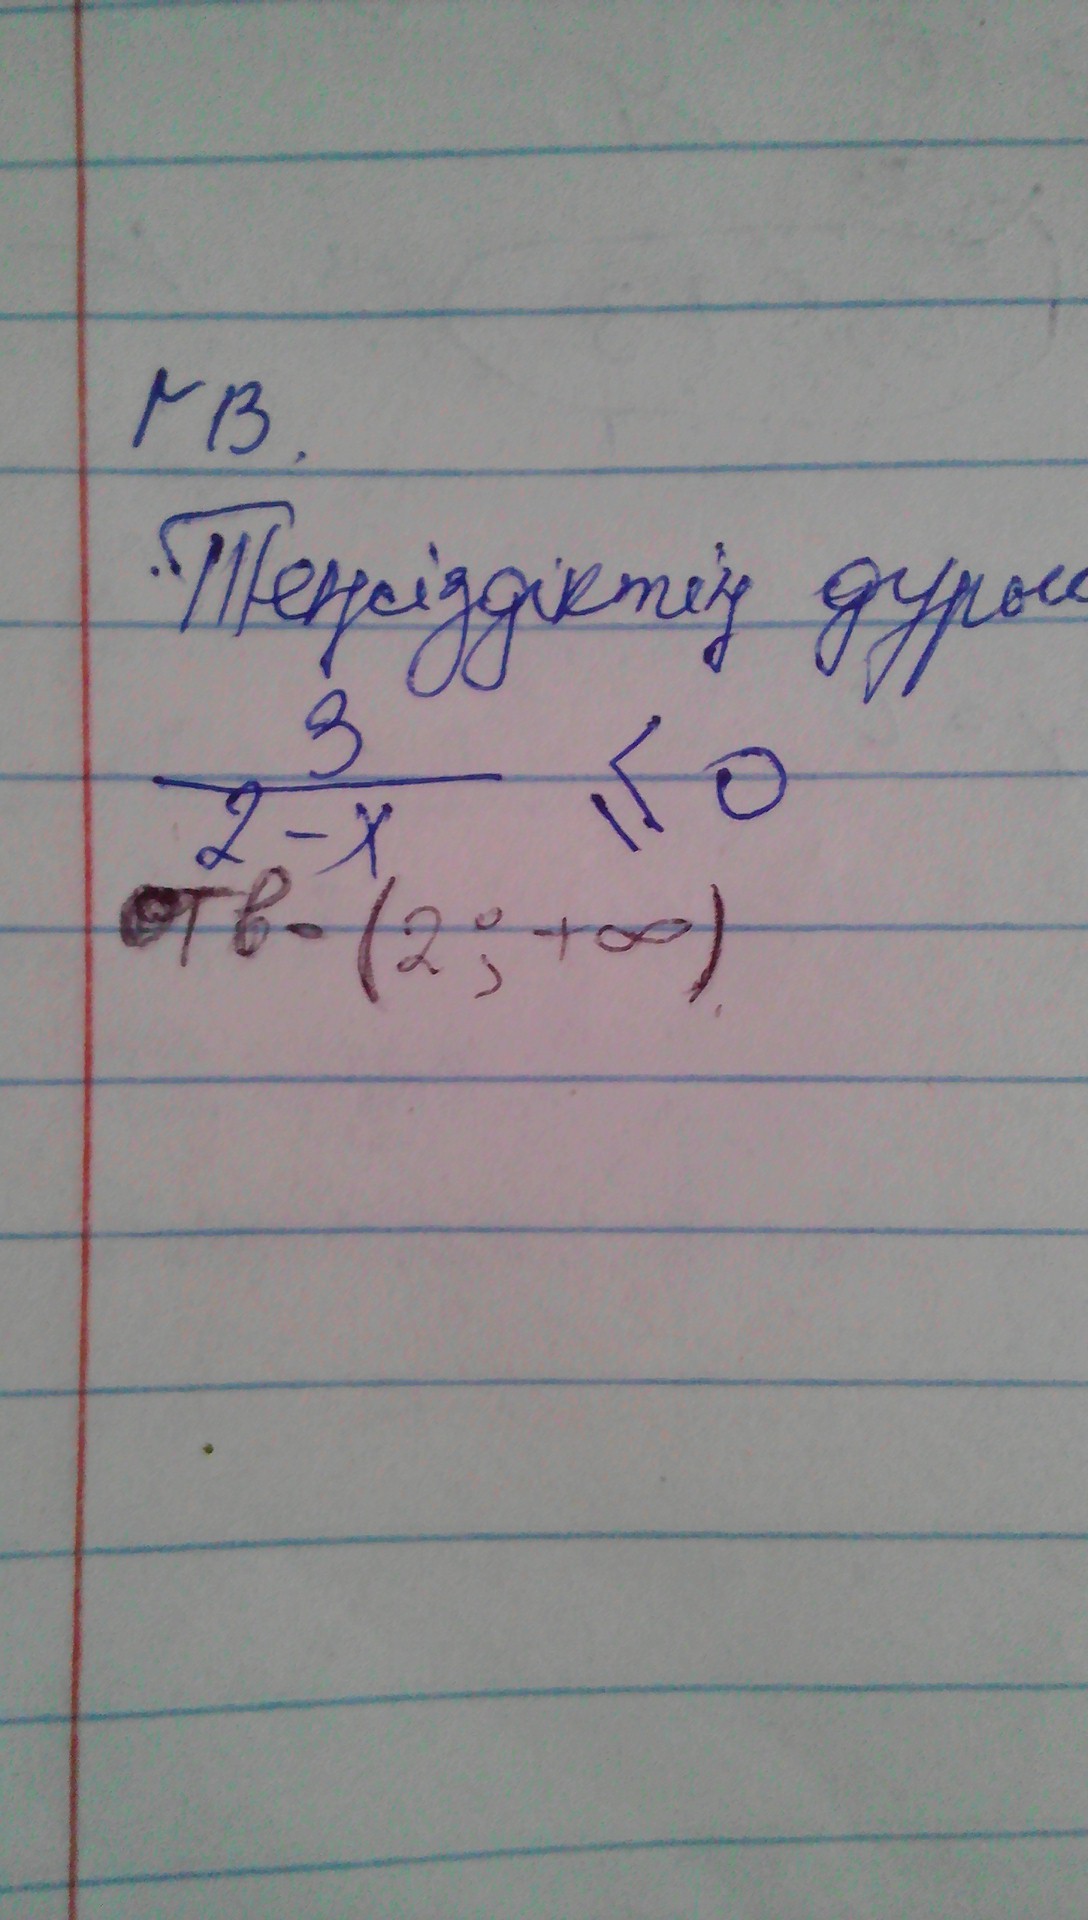 ГВ.
Теңсіздіктің дұрыс
3
2-x ≤ 0
отв-(2;+∞)